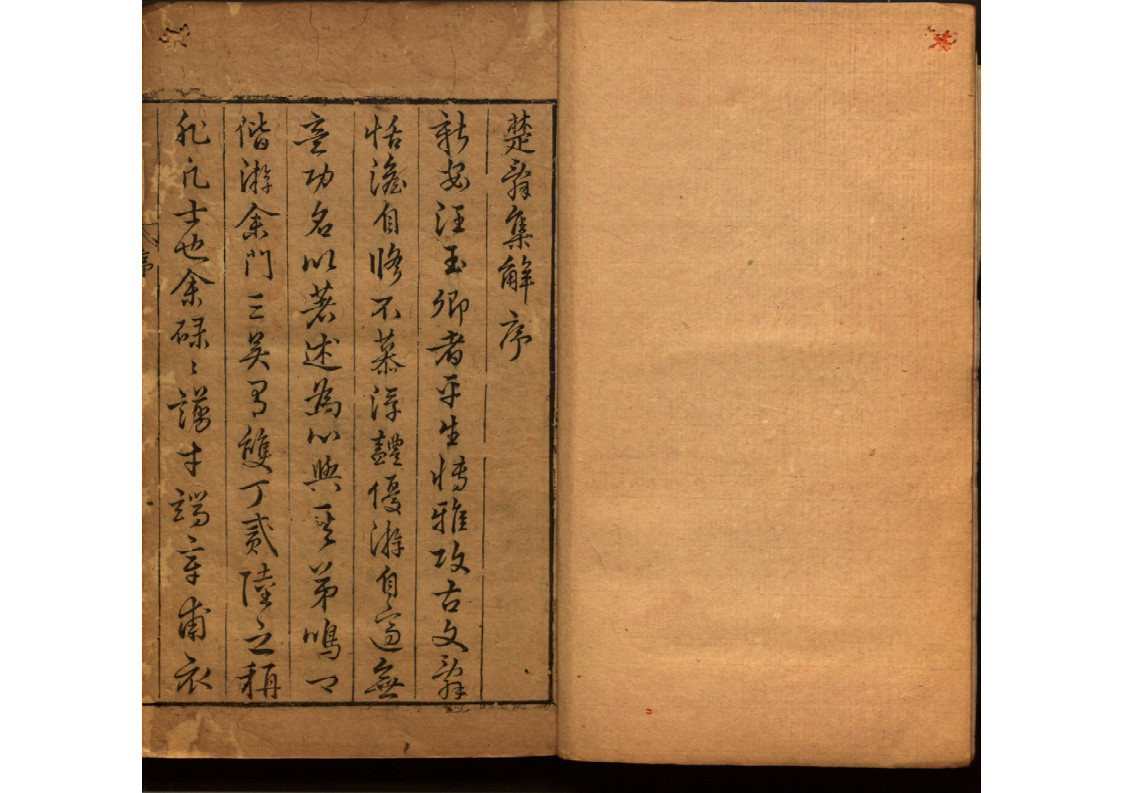 楚辭集解序
新安汪玉卿者平生博雅攻古文辭
恬澹自脩不慕浮豔優游自適無
意功名以著述為心與其弟鳴卿
偕游余門三吳有雙丁貳陸之稱
非凡士也余碌〻謭才端章甫衣
序